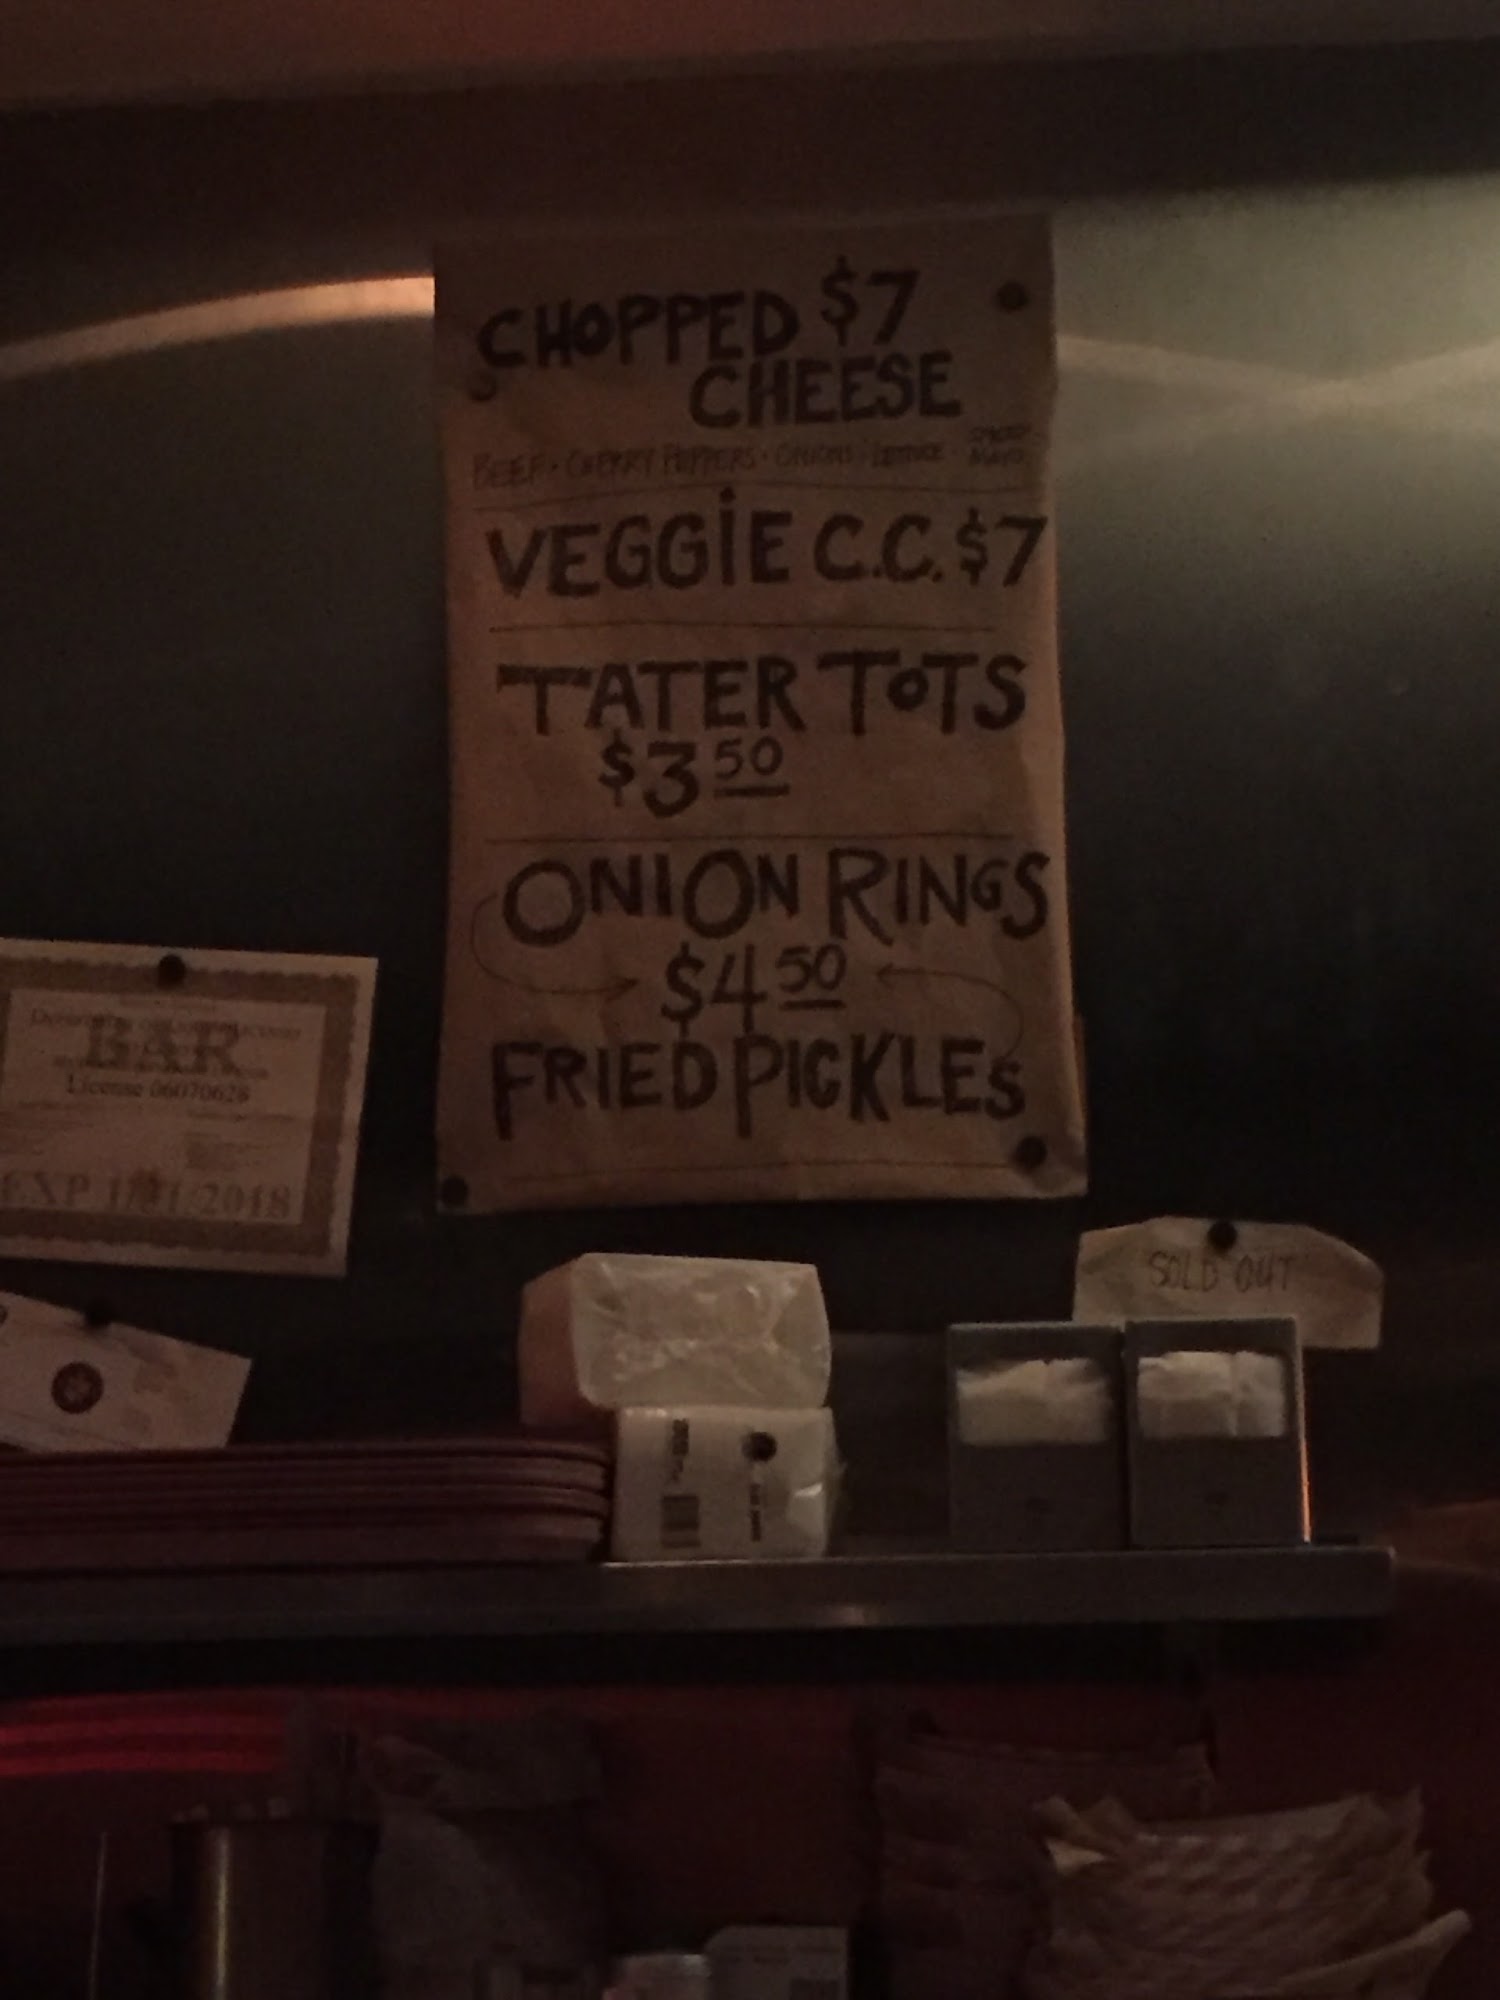 CHOPPED $7
CHEESE
BEEF · CHERRY PEPPERS · ONIONS · LETTUCE · MAYO
VEGGIE C.C. $7
TATER TOTS
$3 50
ONION RINGS
$4 50
FRIED PICKLES
BAR
License 06070628
EXP 1/31/2018
SOLD OUT